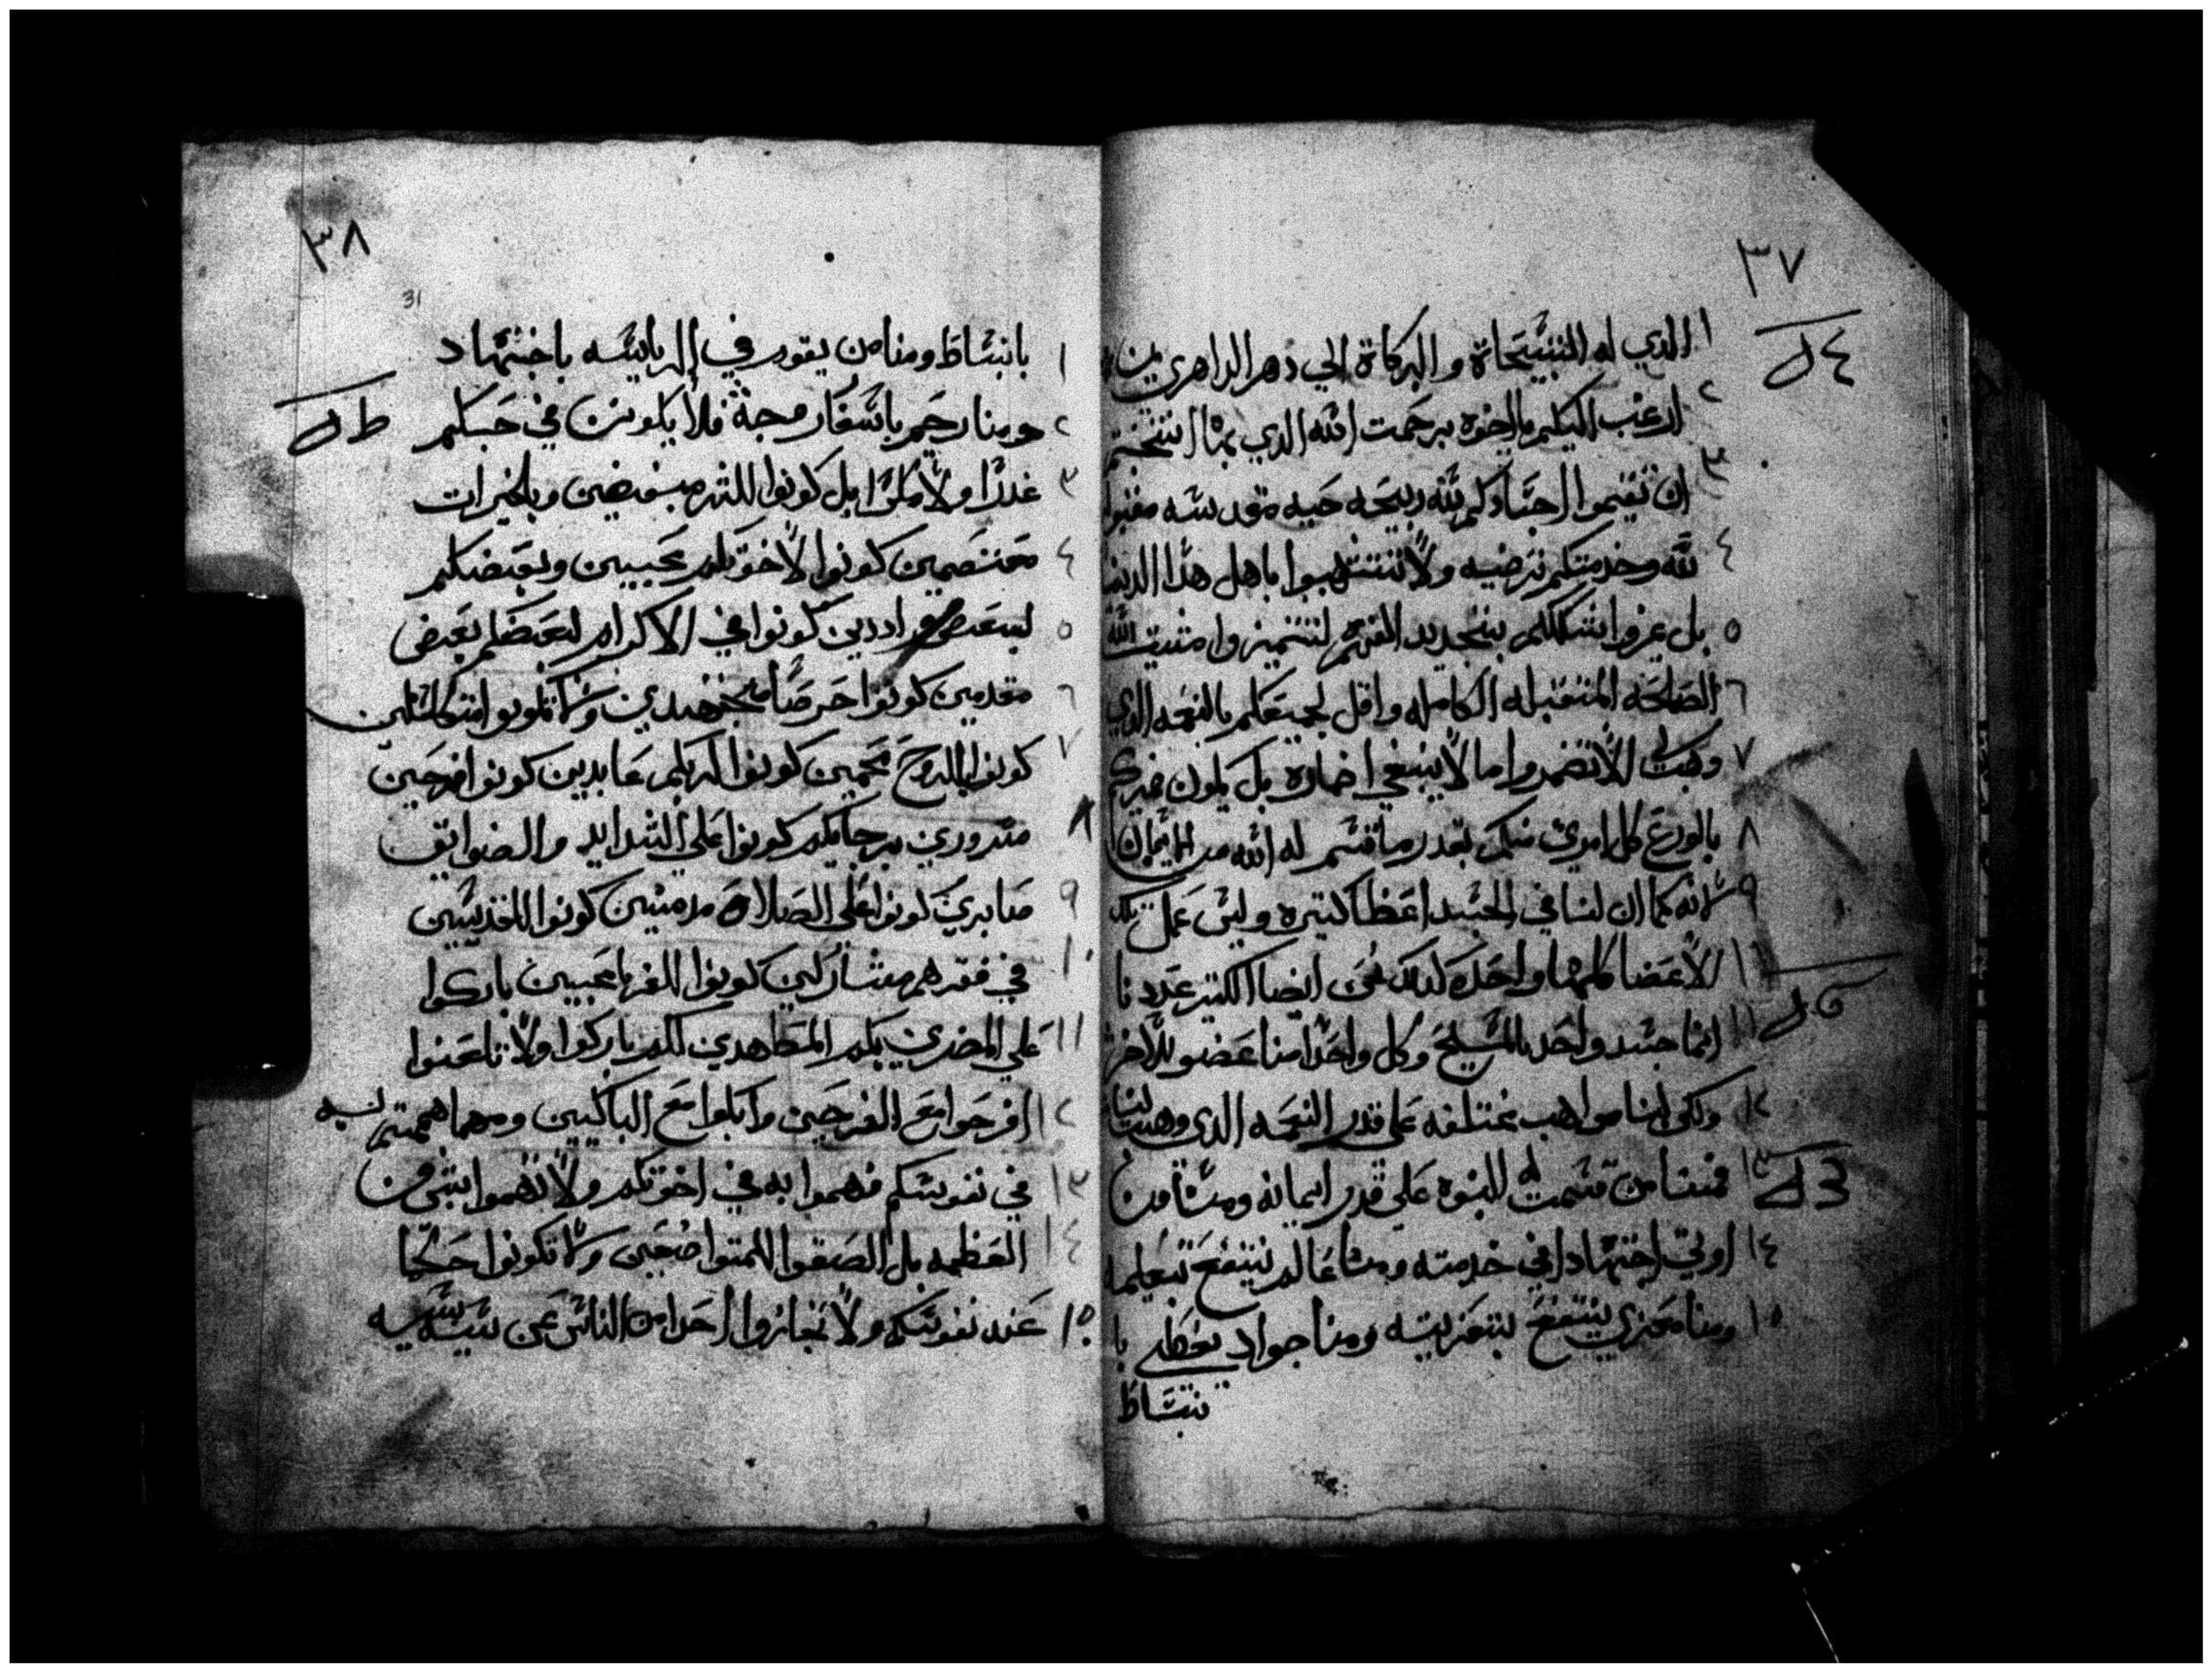 ٣٧
١ الذي له التسبيحاة والبركاة الي دهر الداهرين
٢ ارغب اليكم يااخوه برحمت الله الذي بها انتختم
٣ ان تقيموا اجسادكم لله دبيحه حيه مقدسه
٤ لله وخدمتكم مرضيه ولا تتشبهوا باهل هذا
٥ بل غيروا شكلكم بتجديد الفهم لتتميزوا مشيت الله
٦ الصالحه المتقبله الكامله واقل لجميعكم بالنعمه الذي
٧ وهبت لي الا تضمروا ما لا ينبغي اضماره بل يكون
٨ بالورع كل امري منكم بقدر ما قسم له الله من الايمان
٩ لانه كما ان لنا في الجسد اعضا كتيره وليس عمل تلك
١٠ الاعضا كلها واحده كدلك نحن ايضا الكتير عددنا
١١ انما جسد واحد بالمسيح وكل واحدا منا عضو للاخر
١٢ ولكن لنا مواهب مختلفه علي قدر النعمه الدي وهبت لنا
١٣ فمنا من قسمت له النبوه علي قدر ايمانه ومنا من
١٤ اوتي اجتهادا في خدمته ومنا عالم ينتفع بتعليمه
١٥ ومنا معزي ينتفع بتعزيته ومنا جواد يعطي با
نبساط
٣٨
31
١ بانبساط ومنا من يقوم في الرياسه باجتهاد
٢ ومنا رحيم فلا يكونن في حبكم
٣ غدرا ولا مكرا بل كونوا للشر مبغضين وبالخيرات
٤ معتصمين كونوا لاخوتكم محبيين وبعضكم
٥ لبعض وادين كونوا في الاكرام لبعضكم بعض
٦ مقدمين كونوا حرصا مجتهدين ولا تكونوا متكاسلين
٧ كونوا بالروح كونوا لربكم عابدين كونوا فرحين
٨ مسرورين برجايكم كونوا علي الشدايد والضوايق
٩ صابرين كونوا علي الصلاة مدمنين كونوا للقديسين
١٠ في فقرهم مشاركين كونوا للغربا محبيين باركوا
١١ علي المضرين بكم المطاهدين لكم باركوا ولا تلعنوا
١٢ افرحوا مع الفرحين وابكوا مع الباكيين ومهما هممتم به
١٣ في نفوسكم فهموا به في اخوتكم ولا تهموا بشي من
١٤ العظمه بل الصقوا للمتواضعين ولا تكونوا حكما
١٥ عند نفوسكم ولا تجازوا احدا من الناس عن سيه بسيه